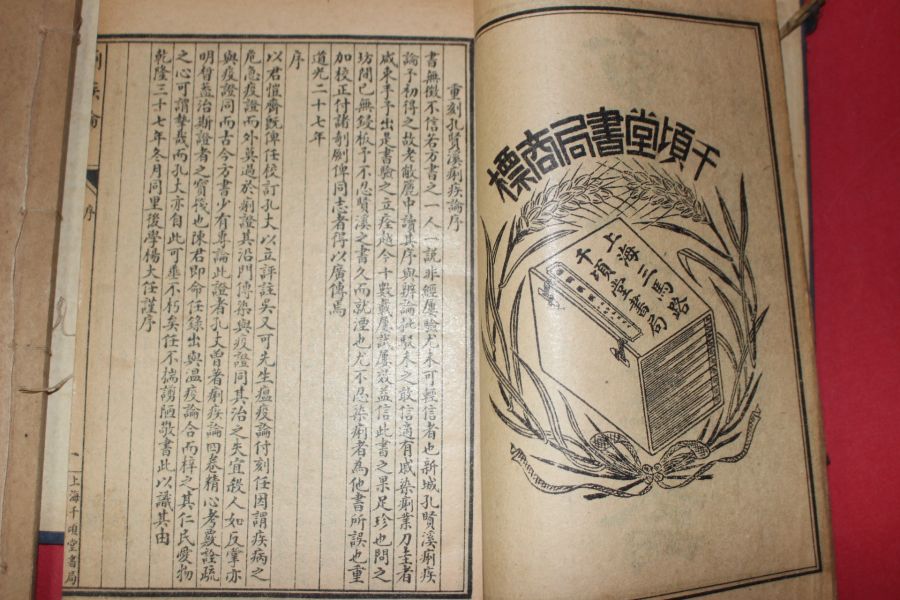 千頃堂書局商標
上海三馬路
千頃堂書局
重刻孔賢溪痢疾論序
書無徵不信若方書之一人一說非經屢驗尤未可輕信者也新城孔賢溪痢疾
論予初得之故老敝簏中讀其序與辨論疑未之敢信適有戚染痢業刀圭者
咸束手予出是書驗之立痊越今十數載屢試屢效益信此書之果足珍也問之
坊間已無鋟板予不忍賢溪之書久而就湮也尤不忍染痢者為他書所誤也重
加校正付諸剞劂俾同志者得以廣傳焉
道光二十七年
序
以君愷齋既俾任校訂孔丈以立評註吳又可先生瘟疫論付刻任因謂疾病之
危急疫證而外莫過於痢證其沿門傳染與疫證同其治之失宜殺人如反掌亦
與疫證同而古今方書少有專論此證者孔丈曾著痢疾論四卷精心考覈詮疏
明晳蓋治斯證者之寶筏也陳君即命任錄出與溫疫論合而梓之其仁民愛物
之心可謂摯哉而孔丈亦自此可垂不朽矣任不揣謭陋敬書此以識其由
乾隆三十七年冬月同里後學楊大任謹序
痢疾論
序
一
上海千頃堂書局